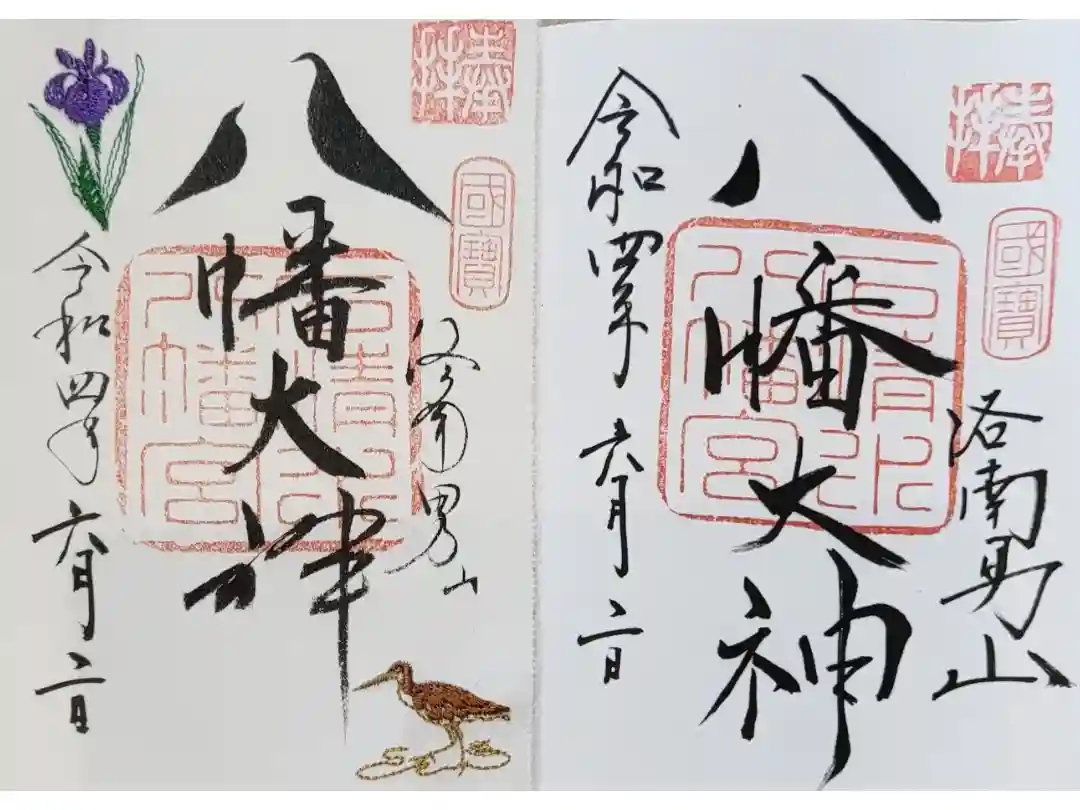 奉拝
國寶
洛南男山
八幡大神
石清水八幡宮
令和四年六月二日
奉拝
國寶
洛南男山
八幡大神
石清水八幡宮
令和四年六月二日